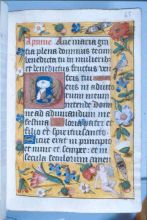 Ad prime. Aue maria gra
tia plena dominus tecum
benedicta tu in mulieribus
et benedictus fructus
Deus in
adiutorium
meum inten
de Domi
ne ad adiuuandum me
festina Gloria patri et
filio et spiritui sancto
Sicut erat in principio
et nunc et semper et in
secula seculorum amen